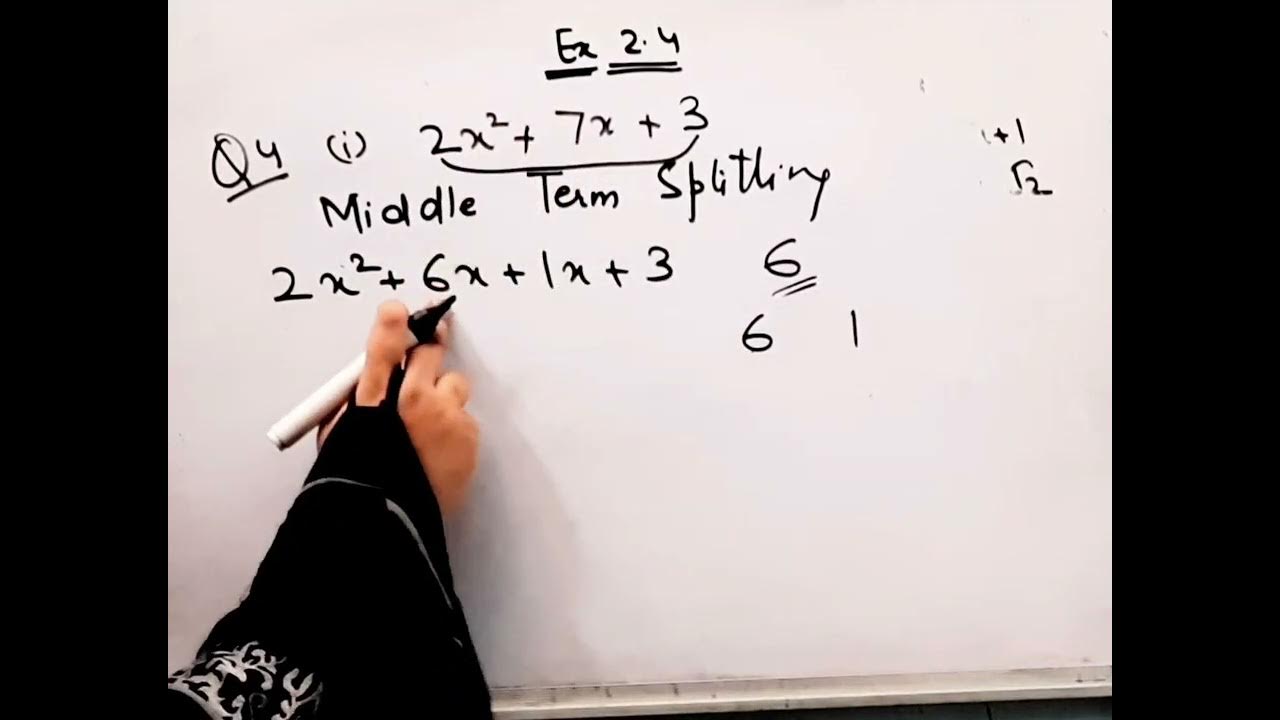 Ex 2.4
Q4 (i) 2x² + 7x + 3
+1
√2
Middle Term Splitting
2x² + 6x + 1x + 3 6
6 1